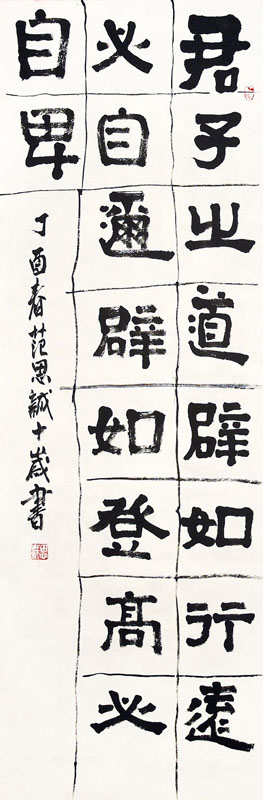 君子之道辟如行遠
必自邇辟如登高必
自卑
丁酉春范思誠十歲書